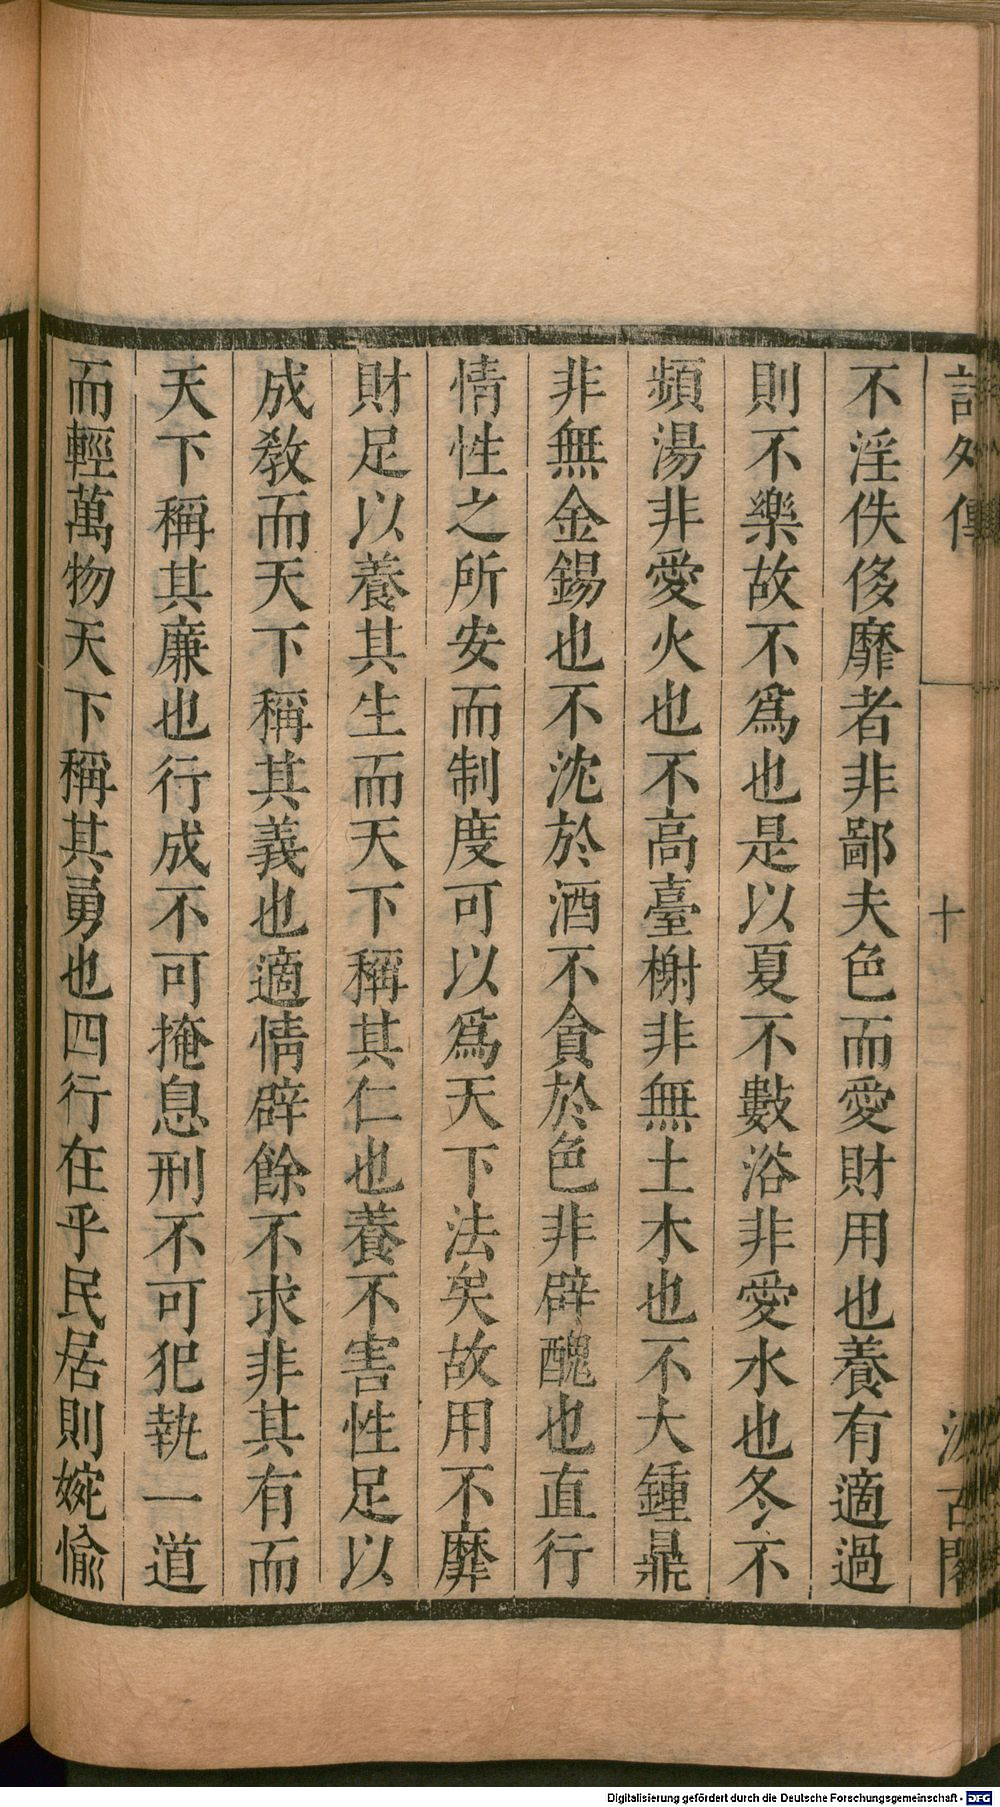 詩外傳 十 汲古閣
不淫佚侈靡者非鄙夫色而愛財用也養有適過
則不樂故不爲也是以夏不數浴非愛水也冬不
頻湯非愛火也不高臺榭非無土木也不大鍾鼎
非無金錫也不沈於酒不貪於色非辟醜也直行
情性之所安而制度可以爲天下法矣故用不靡
財足以養其生而天下稱其仁也養不害性足以
成教而天下稱其義也適情辟餘不求非其有而
天下稱其廉也行成不可掩息刑不可犯執一道
而輕萬物天下稱其勇也四行在乎民居則婉愉
Digitalisierung gefördert durch die Deutsche Forschungsgemeinschaft - DFG